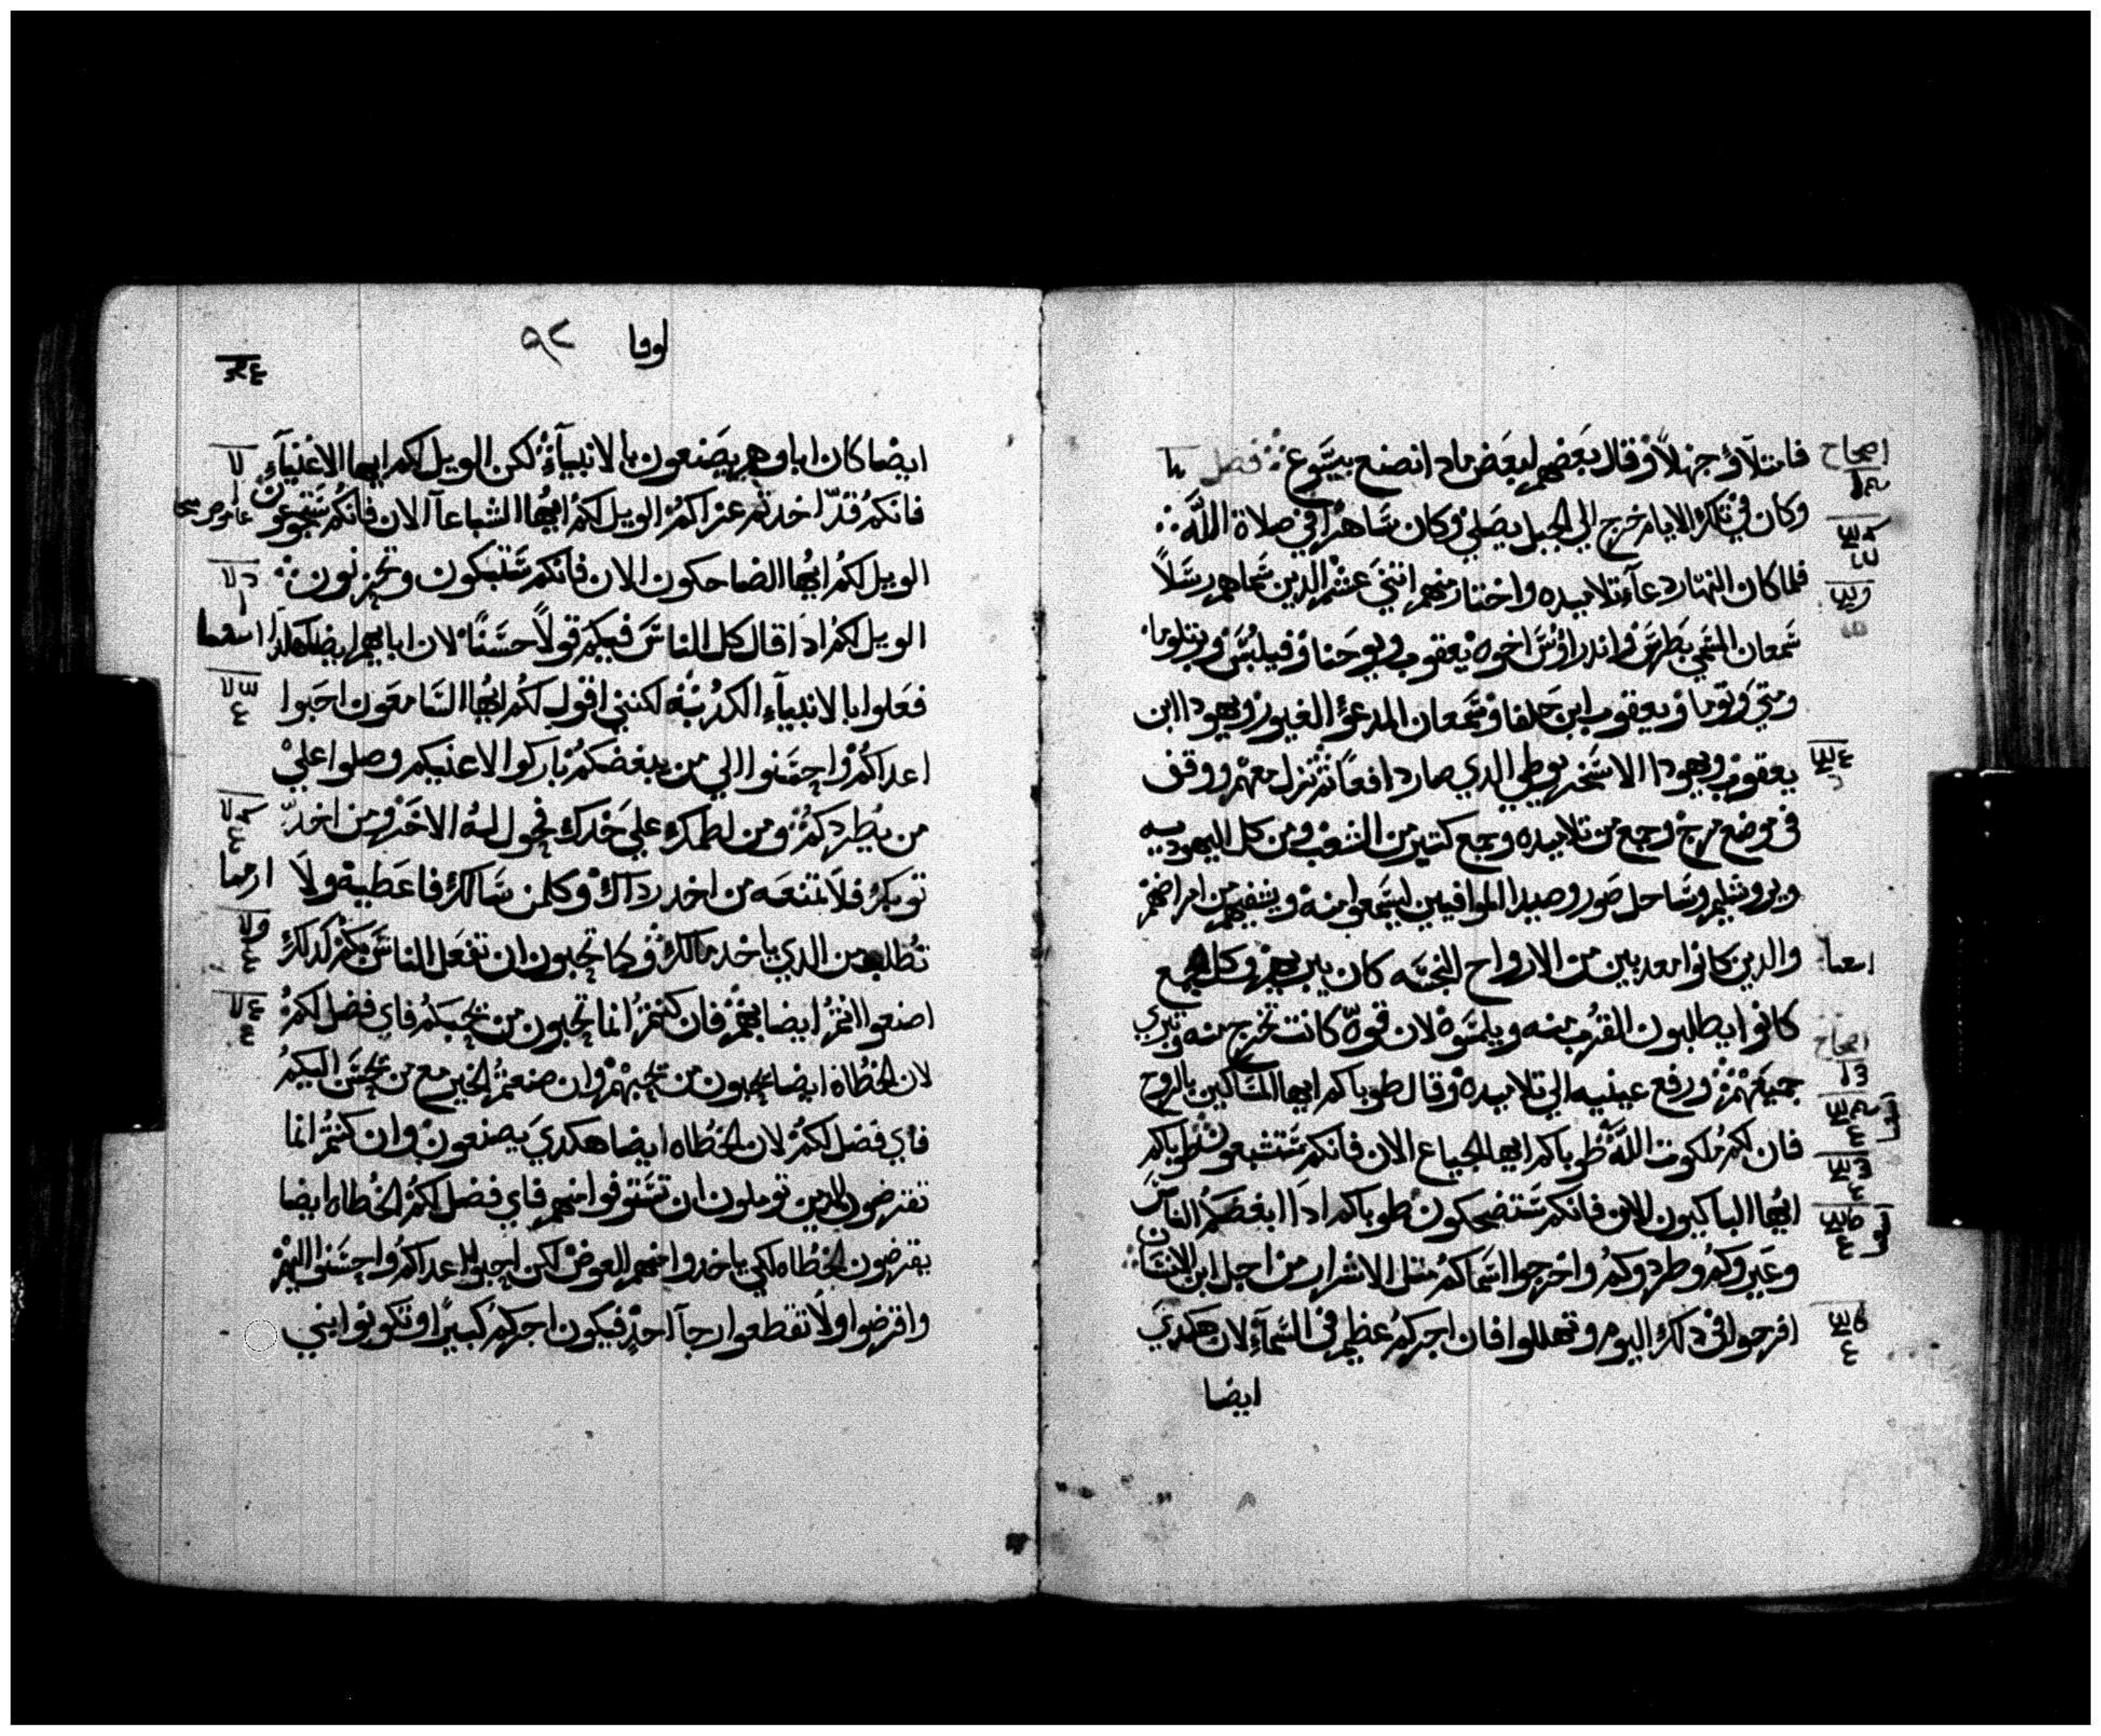 فامتلاؤ جهلاً وقال بعضهم لبعض ماذا نصنع بيسوع فصل
وكان في تلك الايام خرج الي الجبل يصلي وكان ساهراً في صلاة الله
فلما كان النهار دعا تلاميده واختار منهم اتني عشر الدين سماهم رسلاً
سمعان المسمي بطرس واندراوس اخوه يعقوب ويوحنا وفيلبس وبرتلوما
ومتي وتوما ويعقوب ابن حلفا وسمعان المدعو الغيور ويهودا ابن
يعقوب ويهودا الاسخريوطي الدي صار دافعاً تم نزل معهم ووقف
في موضع مرج وجمع من تلاميده وجمع كتير من الشعب ومن كل اليهوديه
ويروشليم وساحل صور وصيدا الموافيين ليسمعوا منه ويشفيهم من امراضهم
والدين كانوا معدبين من الارواح النجسه كان يبريهم وكل الجمع
كانوا يطلبون القرب منه ويلمسوه لان قوه كانت تخرج منه وتبري
جميعهم ورفع عينيه الي تلاميده وقال طوباكم ايها المساكين بالروح
فان لكم ملكوت الله طوباكم ايها الجياع الان فانكم ستشبعون طوباكم
ايها الباكيون الان فانكم ستضحكون طوباكم ادا ابغضكم الناس
وعيروكم وطردوكم واخرجوا اسماكم متل الاشرار من اجل ابن الانسان
افرحوا في دلك اليوم وتهللوا فان اجركم عظيم في السماء لان هكدي
ايضا
اصحاح
اشعيا
اصحاح
لوقا ٩٢
ايضا كان اباوهم يصنعون بالانبياء لكن الويل لكم ايها الاغنياء
فانكم قد اخدتم عزاكم الويل لكم ايها الشباعا الان فانكم ستجوعون
الويل لكم ايها الضاحكون الان فانكم ستبكون وتحزنون
الويل لكم ادا قال كل الناس فيكم قولاً حسناً لان اباهم ايضا هكدا
فعلوا بالانبياء الكدبه لكنني اقول لكم ايها السامعون احبوا
اعداكم واحسنوا الي من يبغضكم باركوا لاعنيكم وصلوا علي
من يطردكم ومن لطمك علي خدك فحول له الاخر ومن اخد
توبك فلا تمنعه من اخد رداك وكلمن سالك فاعطيه ولا
تطلب من الدي ياخد مالك وكما تحبون ان تفعل الناس بكم كدلك
اصنعوا انتم ايضا بهم فان كنتم انما تحبون من يحبكم فاي فضل لكم
لان الخطاة ايضا يحبون من يحبهم وان صنعتم الخير مع من يحسن اليكم
فاي فضل لكم لان الخطاه ايضا هكدي يصنعون وان كنتم انما
تقترضون للدين توملون ان تستوفوا منهم فاي فضل لكم الخطاه ايضا
يقترضون الخطاه لكي ياخدوا منهم العوض لكن احبوا اعداكم واحسنوا اليهم
واقرضوا ولا تقطعوا رجآ احد فيكون اجركم كبيراً وتكونوا بني
ارميا